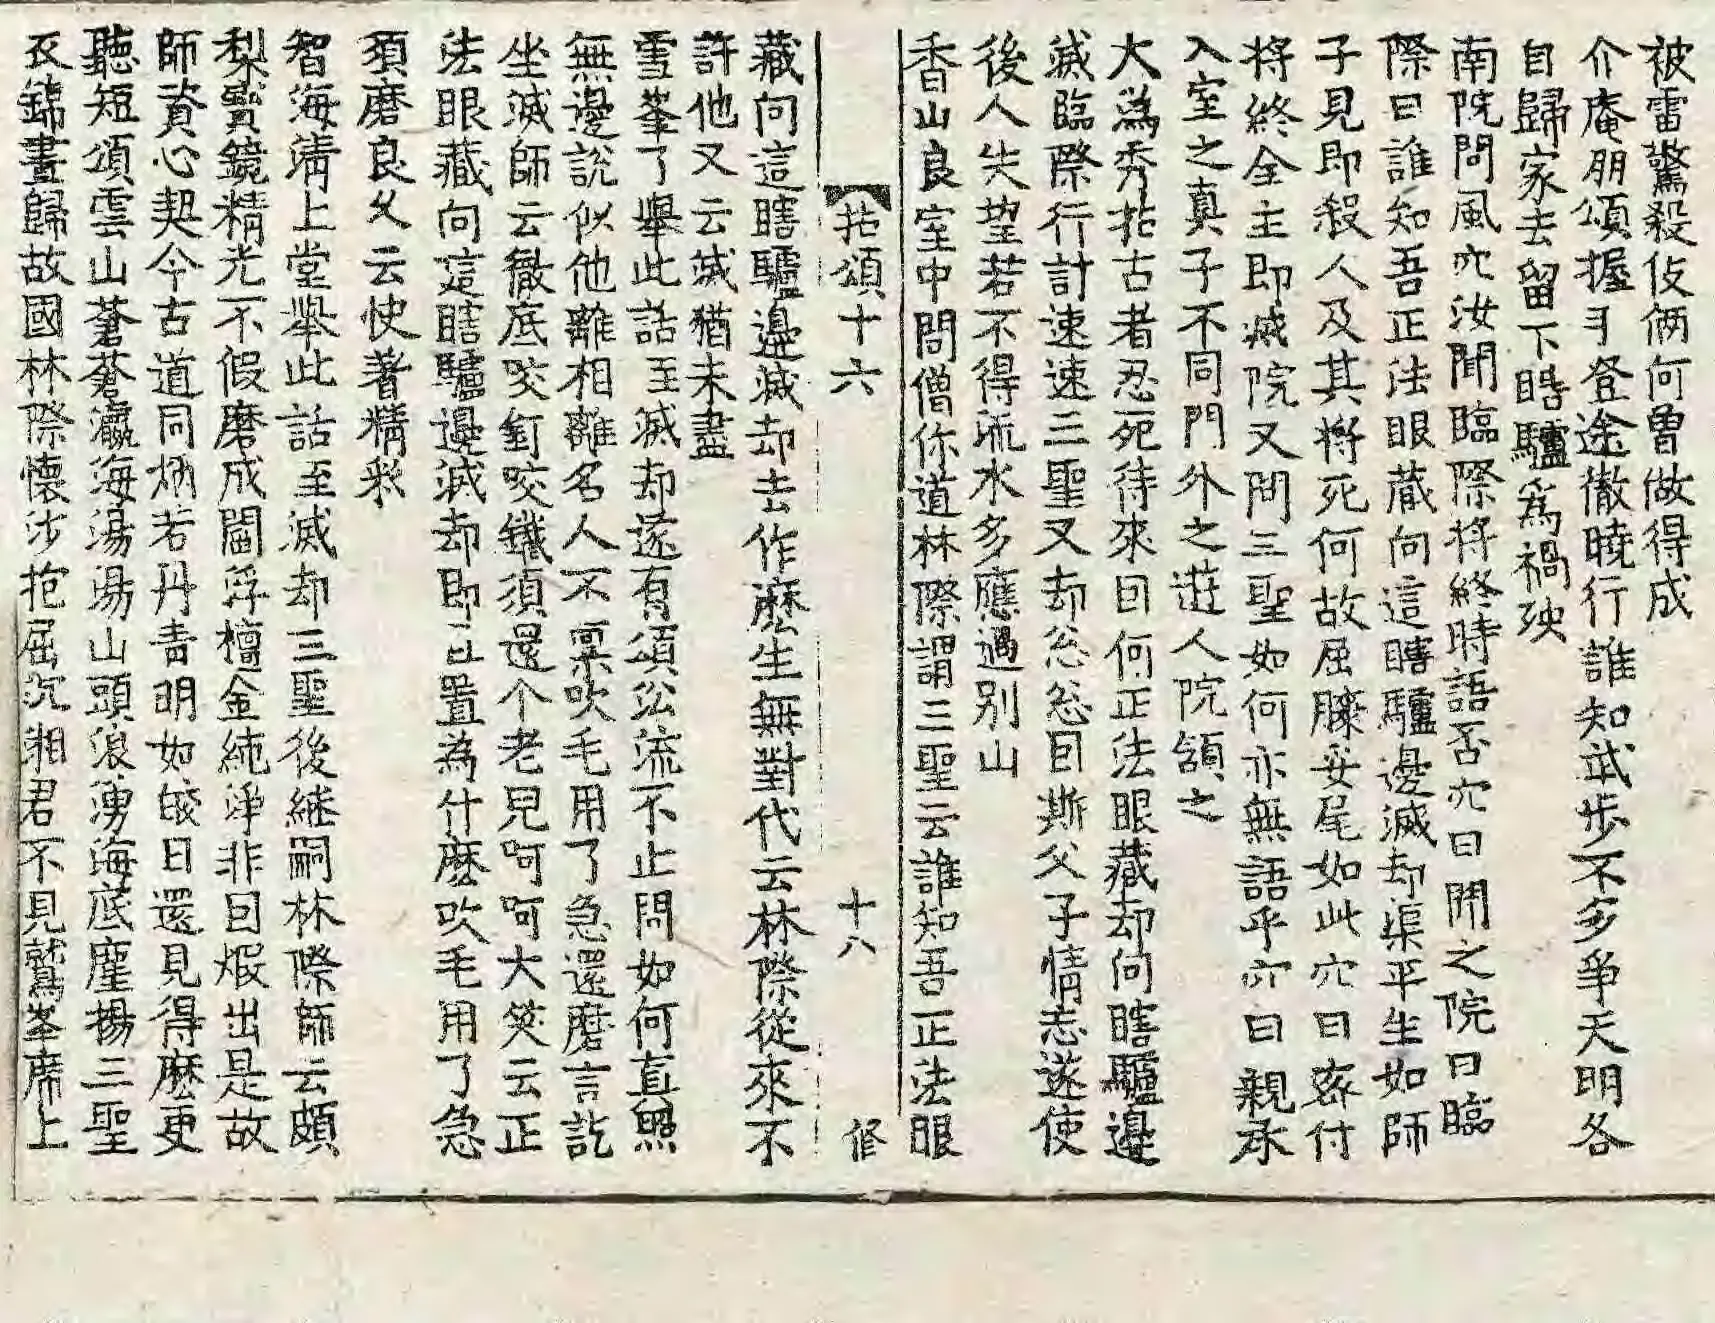 被雷驚殺伎倆何曾做得成
介庵朋頌握弓登途徹曉行誰知武步不多爭天明各
自歸家去留下瞎驢爲禍殃
南院問風穴汝聞臨際將終時語否穴曰聞之院曰臨
際曰誰知吾正法眼蔵向這瞎驢邊滅却渠平生如師
子見即殺人及其將死何故屈膝妥尾如此穴曰密付
將終全主即滅院又問三聖如何亦無語乎穴曰親承
入室之真子不同門外之遊人院頷之
大潙秀拈古者忍死待來因何正法眼藏却向瞎驢邊
滅臨際行計速速三聖又却忩忩因斯父子情志遂使
後人失望若不得流水多應過别山
香山良室中問僧你道林際謂三聖云誰知吾正法眼
拈頌十六 十八 修
藏向這瞎驢邊滅却去作麽生無對代云林際從來不
許他又云滅猶未盡
雪峯了舉此話至滅却遂有頌㳂流不止問如何真照
無邊說似他離相離名人不禀吹毛用了急還磨言訖
坐滅師云徹底咬釘咬鐵須還个老兒呵呵大笑云正
法眼藏向這瞎驢邊滅却即且置為什麽吹毛用了急
須磨良久云快著精彩
智海清上堂舉此話至滅却三聖後継嗣林際師云頗
梨寶鏡精光不假磨成閻浮檀金純淨非因煆出是故
師資心契今古道同炳若丹青明如皎日還見得麽更
聽短頌雲山蒼蒼瀛海湯湯山頭浪湧海底塵揚三聖
衣錦晝歸故國林際懷沙抱屈沉湘君不見鷲峯席上